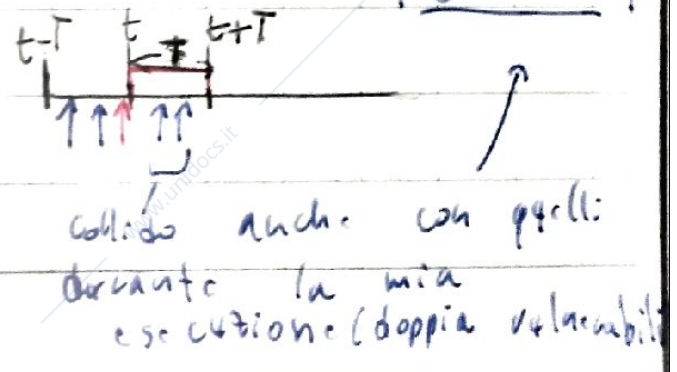 t-T t t+T
T
www.unidocs.it
collido anche con quelli
durante la mia
esecuzione (doppia vulnerabili